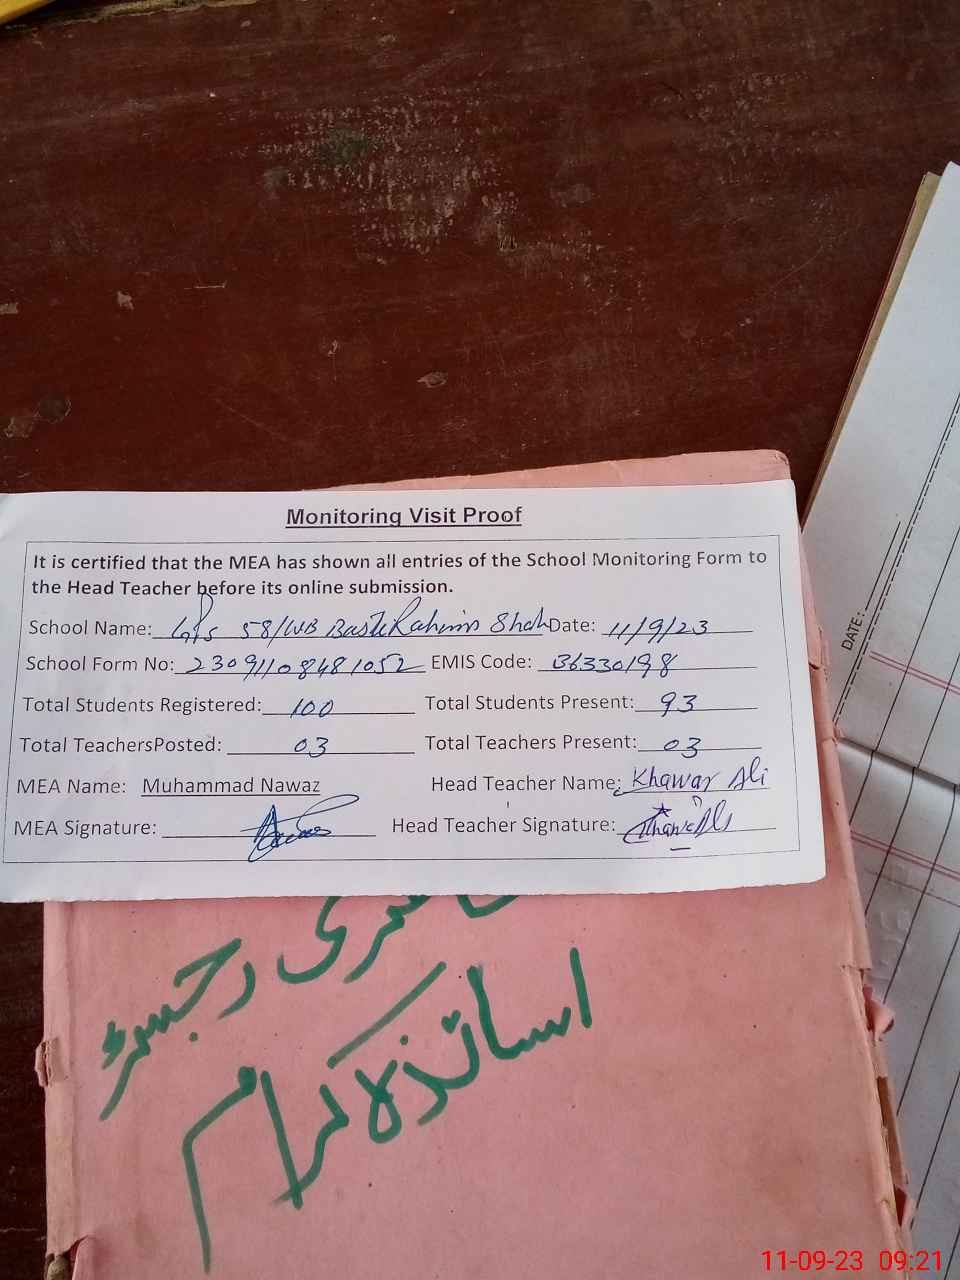 Monitoring Visit Proof
It is certified that the MEA has shown all entries of the School Monitoring Form to
the Head Teacher before its online submission.
School Name: GPS 58/WB Basti Rahim Shah Date: 11/9/23
School Form No: 23091108481052 EMIS Code: 36330198
Total Students Registered: 100 Total Students Present: 93
Total TeachersPosted: 03 Total Teachers Present: 03
MEA Name: Muhammad Nawaz Head Teacher Name: Khawar Ali
MEA Signature: Head Teacher Signature: Khawar Ali
حاضری رجسٹر
اساتذہ کرام
DATE:
11-09-23 09:21